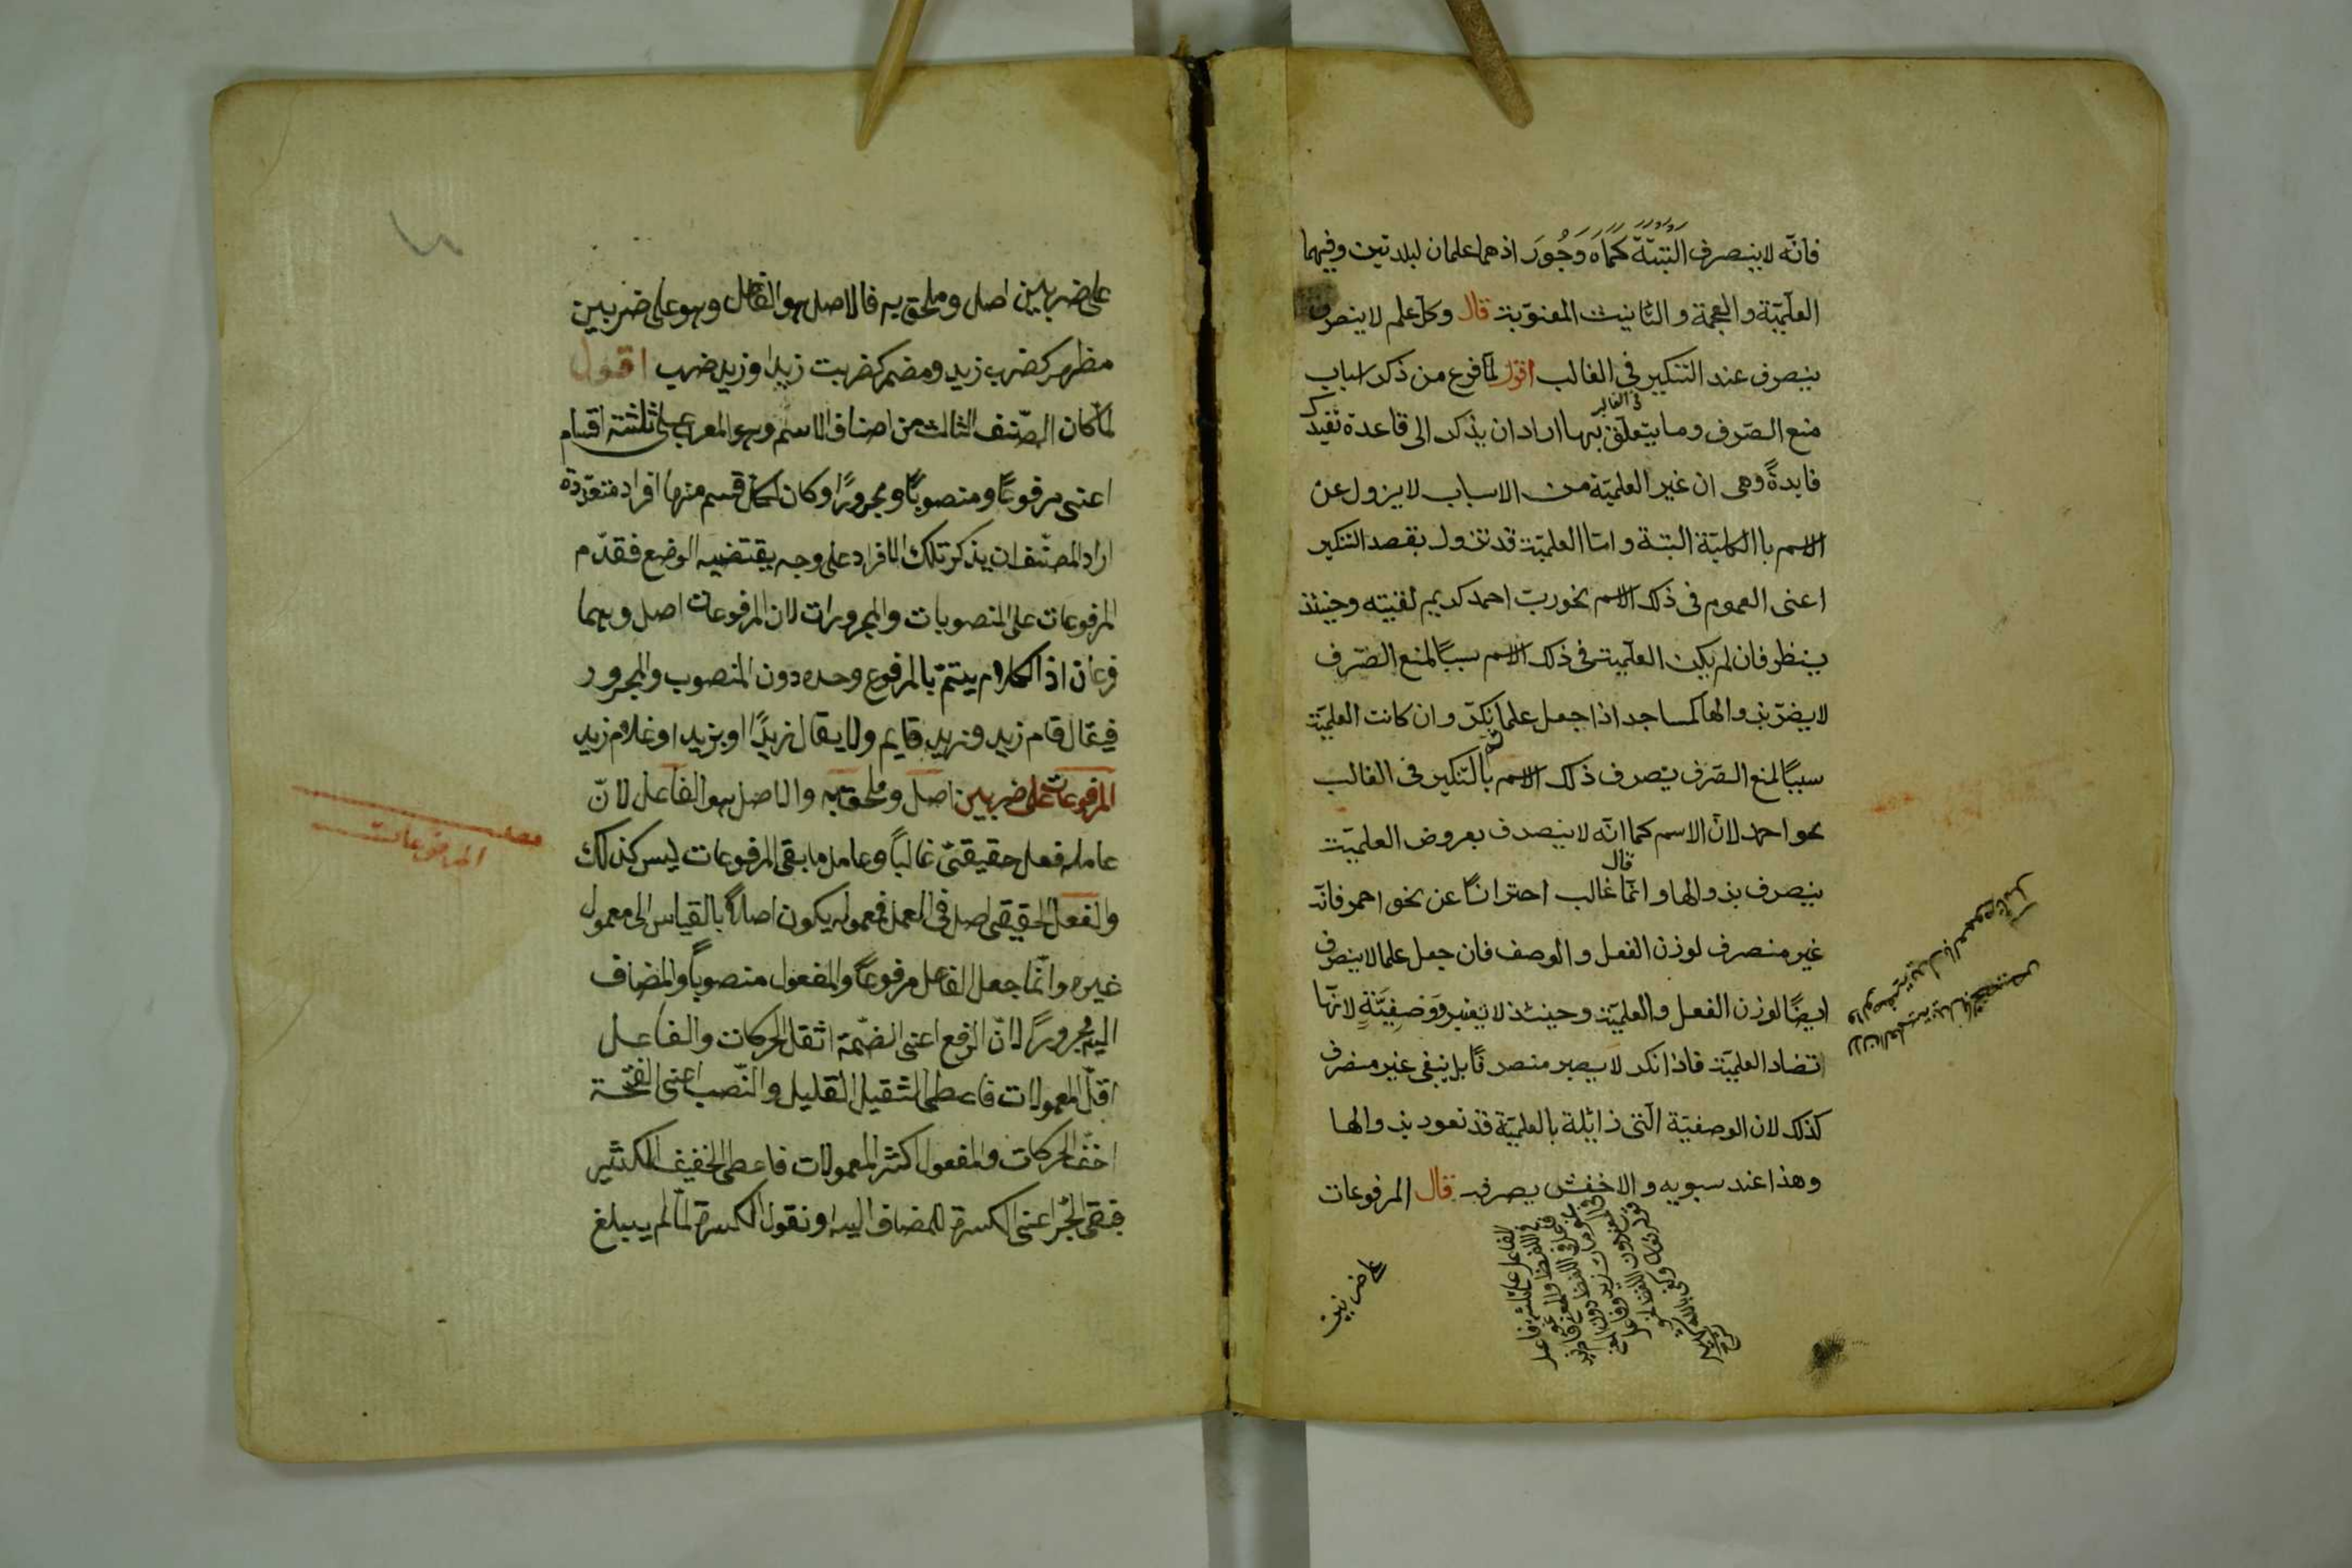 فانّه لا ينصرف البتّة كماه وجُورَ اذ هما علمان لبلدتين وفيهما
العلميّة والعجمة والتانيث المعنويّة قال وكل علم لا ينصرف
ينصرف عند التنكير في الغالب اقول لمّا فرغ من ذكر اسباب
منع الصّرف وما يتعلّق بها اراد ان يذكر الى قاعدة تفيد
فايدةً وهى ان غير العلميّة من الاسباب لا يزول عن
الاسم باالكليّة البتة وامّا العلميّة قد تزول بقصد التنكير
اعنى العموم فى ذلك الاسم نحو ربّ احمد كريم لقيته وحينئذ
ينظر فان لم يكن العلميّة فى ذلك الاسم سببًا لمنع الصّرف
لا يضرّ زوالها كمساجد اذا جعل علما نكرّ وان كانت العلميّة
سببًا لمنع الصّرف ينصرف ذلك الاسم بالتنكير فى الغالب
نحو احمد لانّ الاسم كما انّه لا ينصرف بعروض العلميّة
ينصرف بزوالها وانّما قال غالب احترازًا عن نحو احمر فانّه
غير منصرف لوزن الفعل والوصف فان جعل علما لا ينصرف
ايضًا لوزن الفعل والعلميّة وحينئذ لا يعتبر وَصفِيَّتة لانّها
تضاد العلميّة فاذا نكر لا يصير منصرفًا بل يبقى غير منصرف
كذلك لان الوصفيّة الّتى زائلة بالعلميّة قد تعود بزوالها
وهذا عند سبويه والاخفش يصرفه قال المرفوعات
على ضربين
على ضربين اصل وملحق به فالاصل هو الفاعل وهو على ضربين
مظهر كضرب زيد ومضمر كضربت زيدا وزيد ضرب اقول
لمّا كان الصّنف الثالث من اصناف الاسم وهو المعرب على ثلثة اقسام
اعنى مرفوعًا ومنصوبًا ومجرورًا وكان لكل قسم منها افراد متعدّدة
اراد المصنّف ان يذكر تلك الافراد على وجه يقتضيه الوضع فقدّم
المرفوعات على المنصوبات والمجرورات لان المرفوعات اصل وهما
فرعان اذ الكلام يتمّ بالمرفوع وحده دون المنصوب والمجرور
فيقال قام زيد وزيد قايم ولا يقال زيدًا او بزيد او غلام زيد
المرفوعات على ضربين اصل وملحق به والاصل هو الفاعل لانّ
عامله فعل حقيقىّ غالبًا وعامل ما بقى المرفوعات ليس كذلك
والفعل الحقيقى اصل فى العمل فمعموله يكون اصلاً بالقياس الى معمول
غيره وانّما جعل الفاعل مرفوعًا والمفعول منصوبًا والمضاف
اليه مجرورًا لانّ الرفع اعنى الضمّة اثقل الحركات والفاعل
اقلّ المعمولات فاعطى الثقيل القليل والنّصب اعنى الفتحة
اخفّ الحركات والمفعول اكثر المعمولات فاعطى الخفيف الكثير
فبقى الجرّ اعنى الكسرة للمضاف اليه او نقول الكسرة لمّا لم يبلغ
المرفوعات